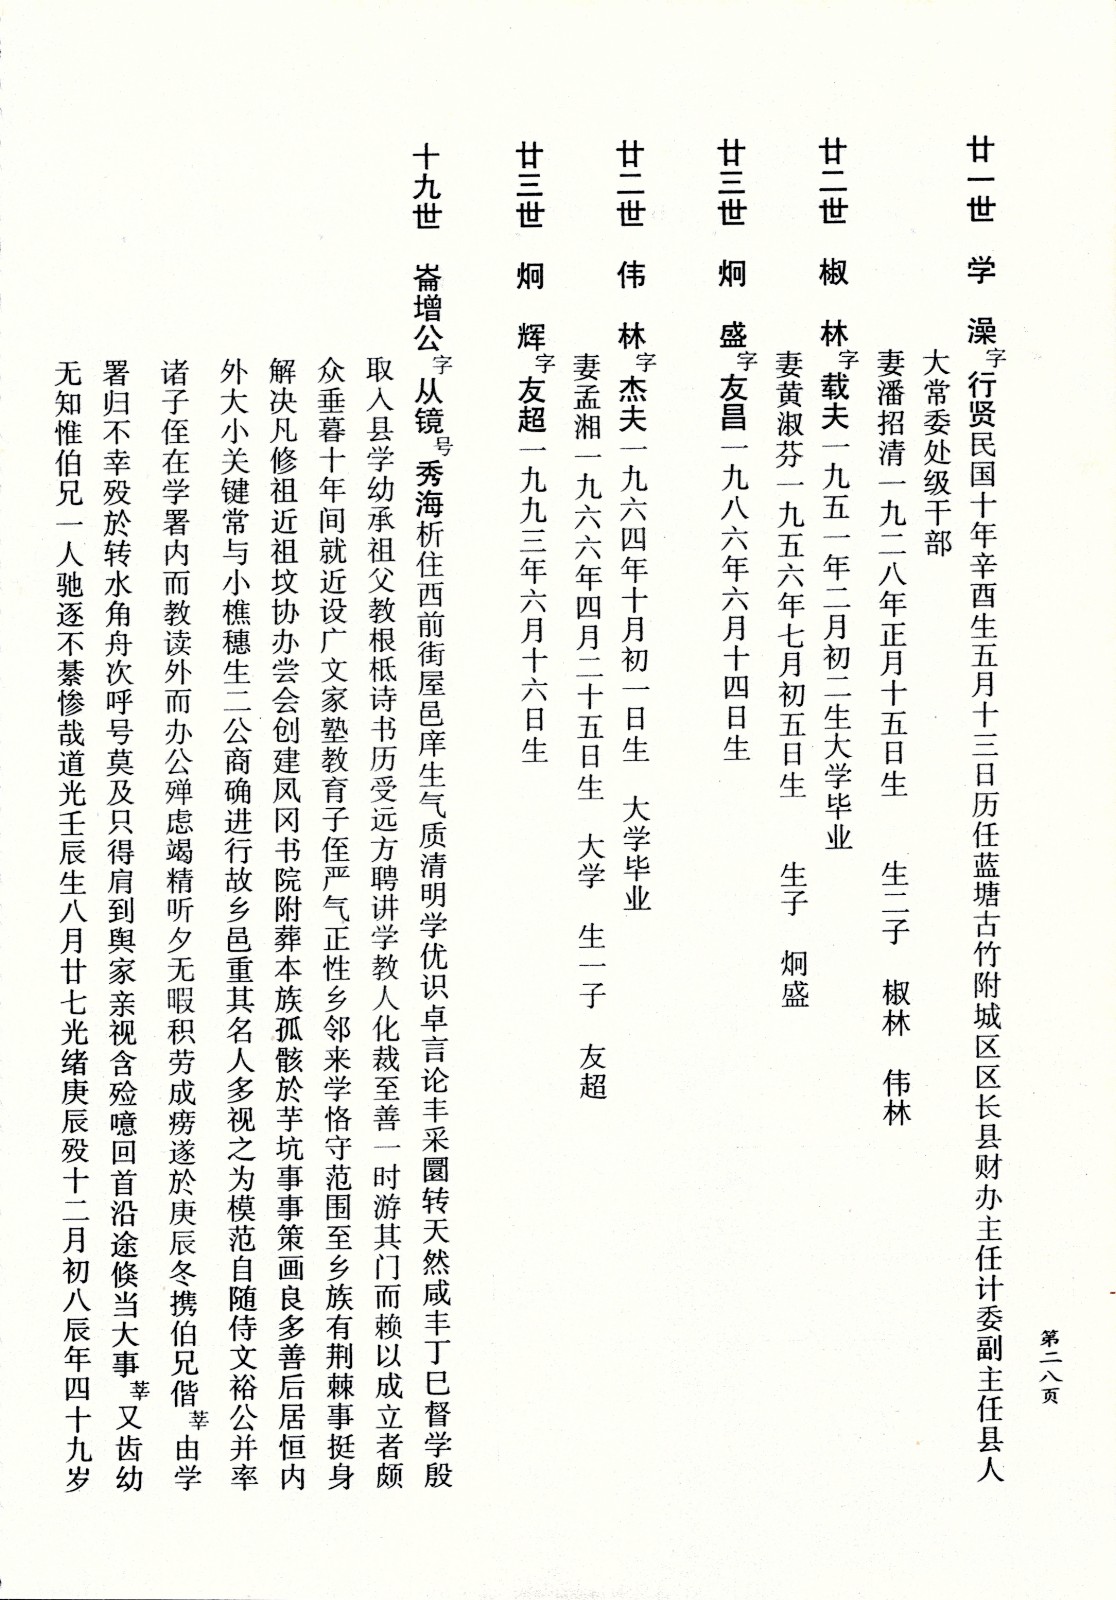 廿一世　学　澡字行贤民国十年辛酉生五月十三日历任蓝塘古竹附城区区长县财办主任计委副主任县人
大常委处级干部
妻潘招清一九二八年正月十五日生　生二子　椒林　伟林
廿二世　椒　林字载夫一九五一年二月初二生大学毕业
妻黄淑芬一九五六年七月初五日生　生子　炯盛
廿三世　炯　盛字友昌一九八六年六月十四日生
廿二世　伟　林字杰夫一九六四年十月初一日生　大学毕业
妻孟湘一九六六年四月二十五日生　大学　生一子　友超
廿三世　炯　辉字友超一九九三年六月十六日生
十九世　崙增公字从镜号秀海析住西前街屋邑庠生气质清明学优识卓言论丰采圜转天然咸丰丁巳督学殷
取入县学幼承祖父教根柢诗书历受远方聘讲学教人化裁至善一时游其门而赖以成立者颇
众垂暮十年间就近设广文家塾教育子侄严气正性乡邻来学恪守范围至乡族有荆棘事挺身
解决凡修祖近祖坟协办尝会创建凤冈书院附葬本族孤骸於芋坑事事策画良多善后居恒内
外大小关键常与小樵穗生二公商确进行故乡邑重其名人多视之为模范自随侍文裕公并率
诸子侄在学署内而教读外而办公殚虑竭精听夕无暇积劳成痨遂於庚辰冬携伯兄偕莘由学
署归不幸殁於转水角舟次呼号莫及只得肩到舆家亲视含殓噫回首沿途倏当大事莘又齿幼
无知惟伯兄一人驰逐不綦惨哉道光壬辰生八月廿七光绪庚辰殁十二月初八辰年四十九岁
第二八页